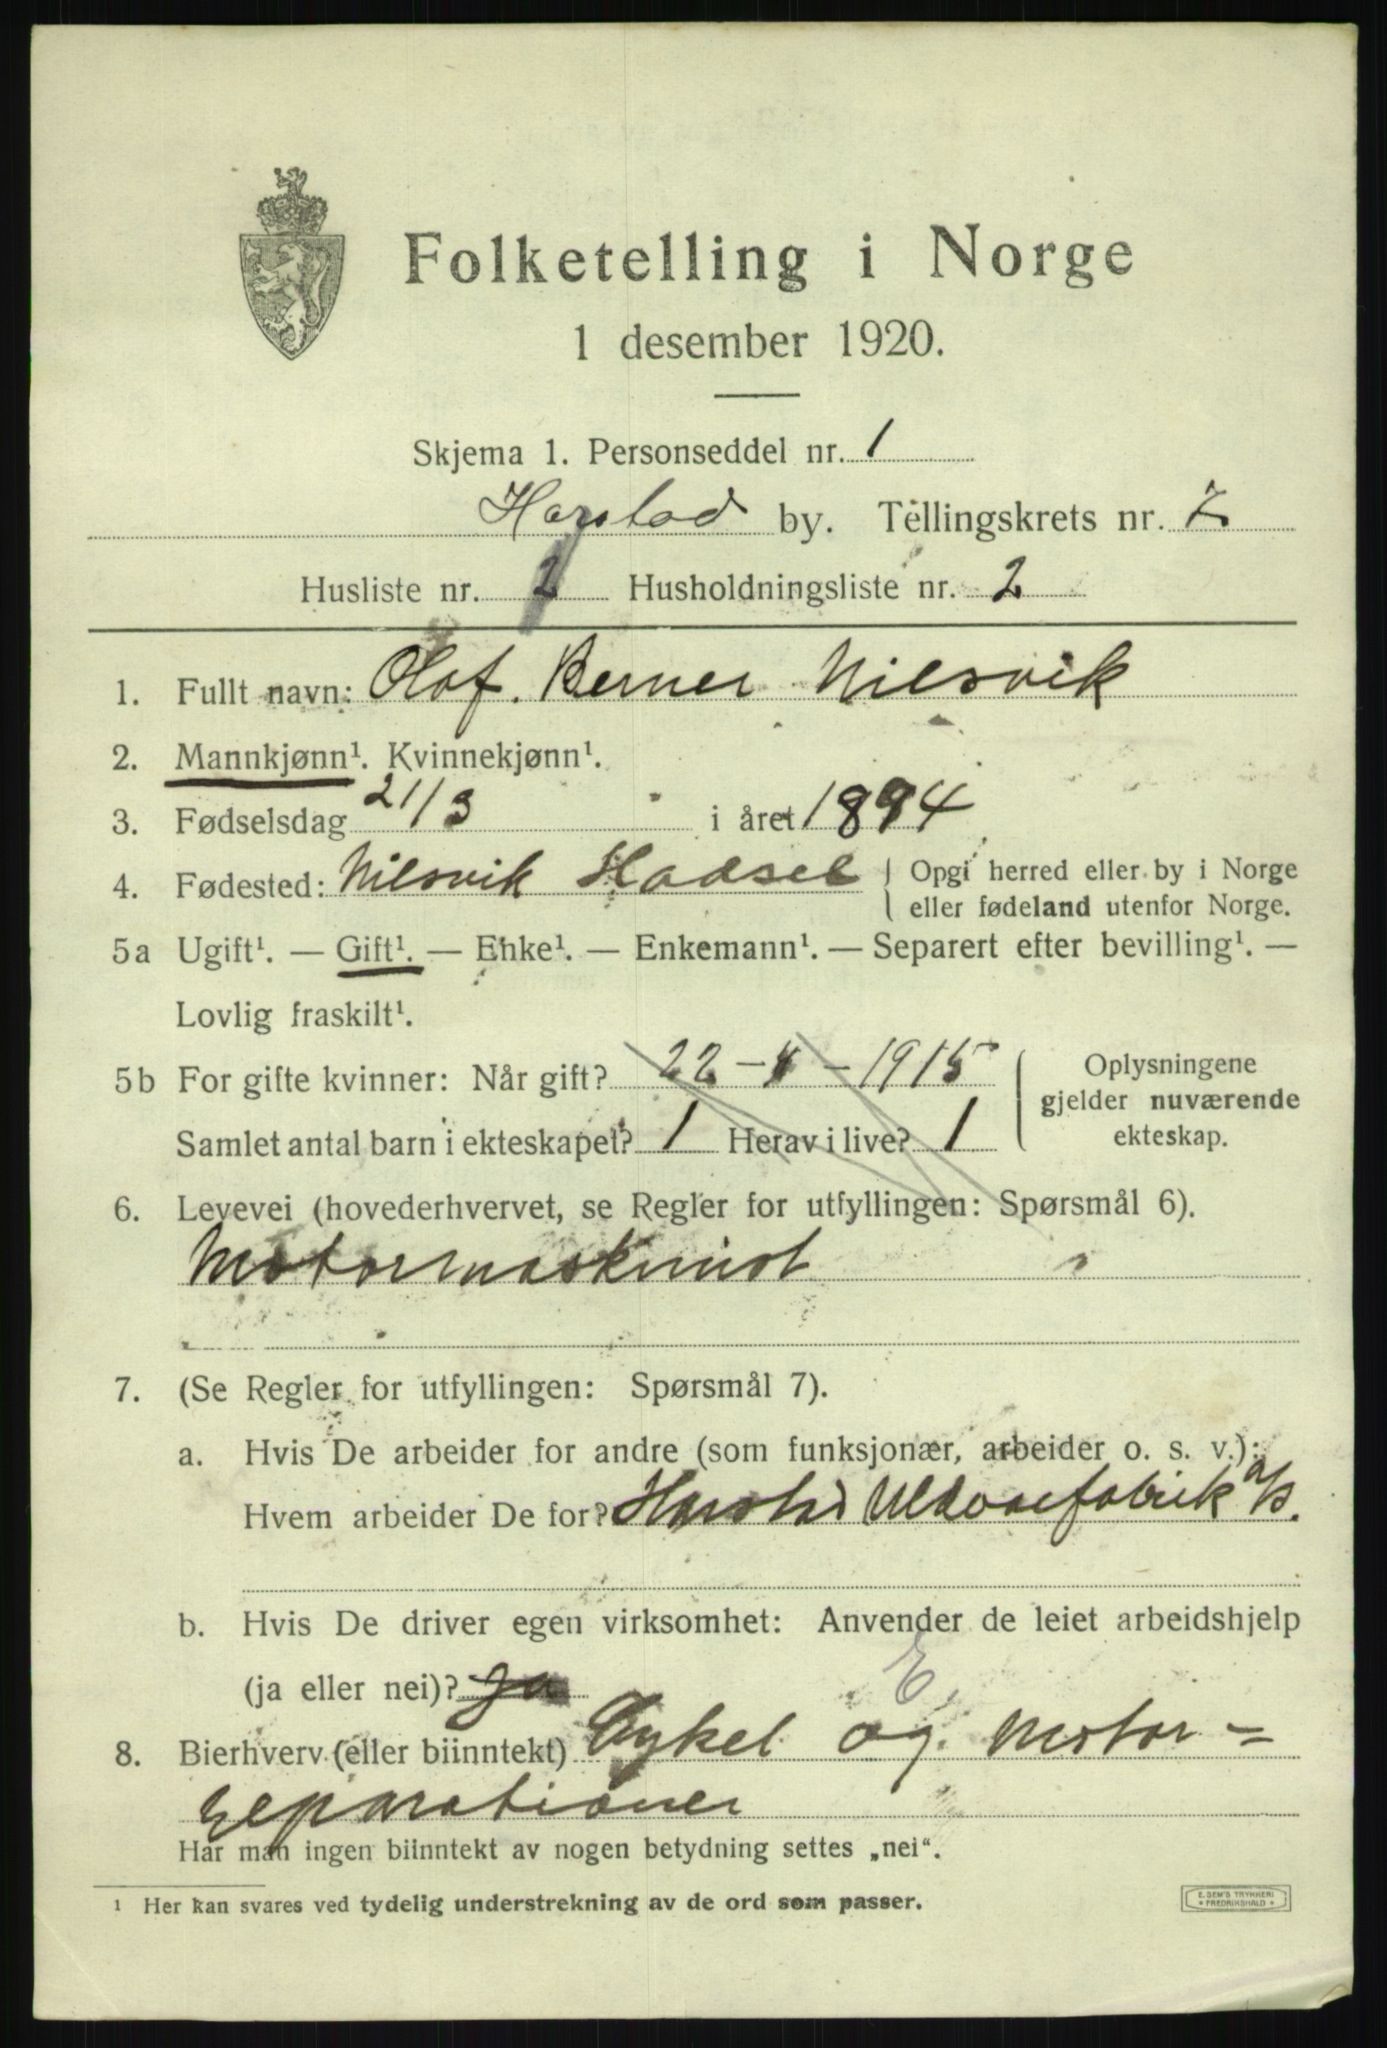 Folketelling i Norge
1 desember 1920.
Skjema 1. Personseddel nr. 1
Harstad by. Tellingskrets nr. 7
Husliste nr. 2 Husholdningsliste nr. 2
1. Fullt navn: Olaf. Berner Nilsvik
2. Mannkjønn¹. Kvinnekjønn¹.
3. Fødselsdag 21/3 i året 1894
4. Fødested: Nilsvik Hadsel { Opgi herred eller by i Norge
eller fødeland utenfor Norge.
5a Ugift¹. — Gift¹. — Enke¹. — Enkemann¹. — Separert efter bevilling¹. —
Lovlig fraskilt¹.
5b For gifte kvinner: Når gift? 22-4-1915
Samlet antal barn i ekteskapet? 1 Herav i live? 1
Oplysningene
gjelder nuværende
ekteskap.
6. Levevei (hovederhvervet, se Regler for utfyllingen: Spørsmål 6).
Motormaskinist
7. (Se Regler for utfyllingen: Spørsmål 7).
a. Hvis De arbeider for andre (som funksjonær, arbeider o. s. v.):
Hvem arbeider De for? Harstad Uldvarefabrik A/S.
b. Hvis De driver egen virksomhet: Anvender de leiet arbeidshjelp
(ja eller nei)? ja E.
8. Bierhverv (eller biinntekt) Cykel og Motor-
reparationer
Har man ingen biinntekt av nogen betydning settes „nei“.
¹ Her kan svares ved tydelig understrekning av de ord som passer.
E. SEM'S TRYKKERI
* FREDRIKSHALD *